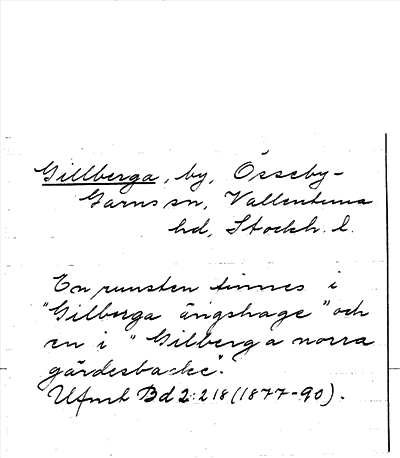 Gillberga, by, Össeby-
Garns sn, Vallentuna
hd, Stockh. l.
En runsten finnes i
"Gilberga ängshage" och
en i "Gilberga norra
gärdesbacke".
Ufmt Bd 2:218 (1877-90).